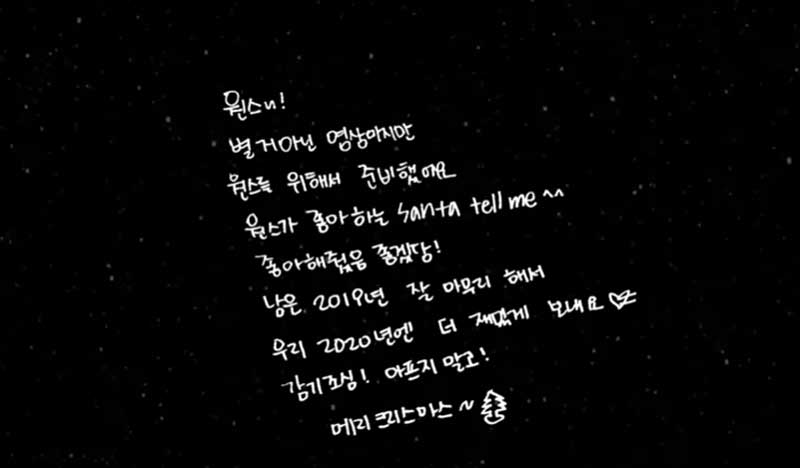 원스!
별 거 아닌 영상이지만
원스를 위해서 준비했어요
원스가 좋아하는 santa tell me ^^
좋아해줬음 좋겠당!
남은 2019년 잘 마무리 해서
우리 2020년엔 더 재밌게 보내요♡
감기조심! 아프지 말고!
메리크리스마스~